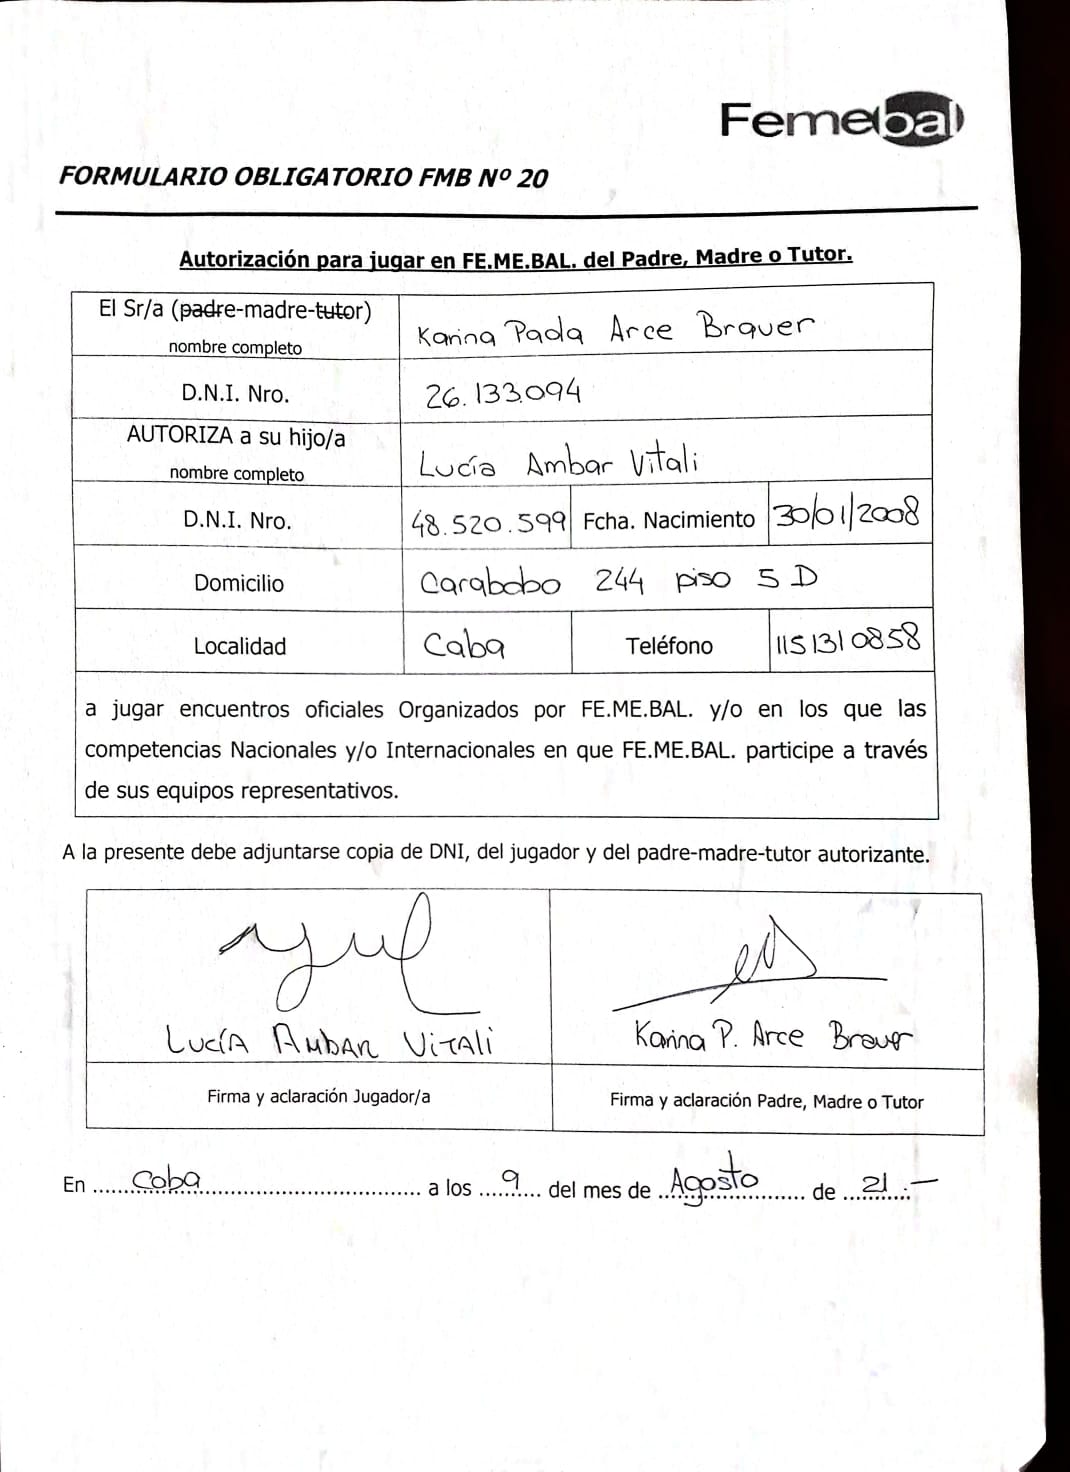 Femebal
FORMULARIO OBLIGATORIO FMB Nº 20
Autorización para jugar en FE.ME.BAL. del Padre, Madre o Tutor.
El Sr/a (padre-madre-tutor)
nombre completo
Karina Paola Arce Brauer
D.N.I. Nro.
26.133.094
AUTORIZA a su hijo/a
nombre completo
Lucía Ambar Vitali
D.N.I. Nro.
48.520.599
Fcha. Nacimiento
30/01/2008
Domicilio
Carabobo 244 piso 5 D
Localidad
Caba
Teléfono
1151310858
a jugar encuentros oficiales Organizados por FE.ME.BAL. y/o en los que las
competencias Nacionales y/o Internacionales en que FE.ME.BAL. participe a través
de sus equipos representativos.
A la presente debe adjuntarse copia de DNI, del jugador y del padre-madre-tutor autorizante.
Lucía Ambar Vitali
Karina P. Arce Brauer
Firma y aclaración Jugador/a
Firma y aclaración Padre, Madre o Tutor
En Caba a los 9 del mes de Agosto de 21.-